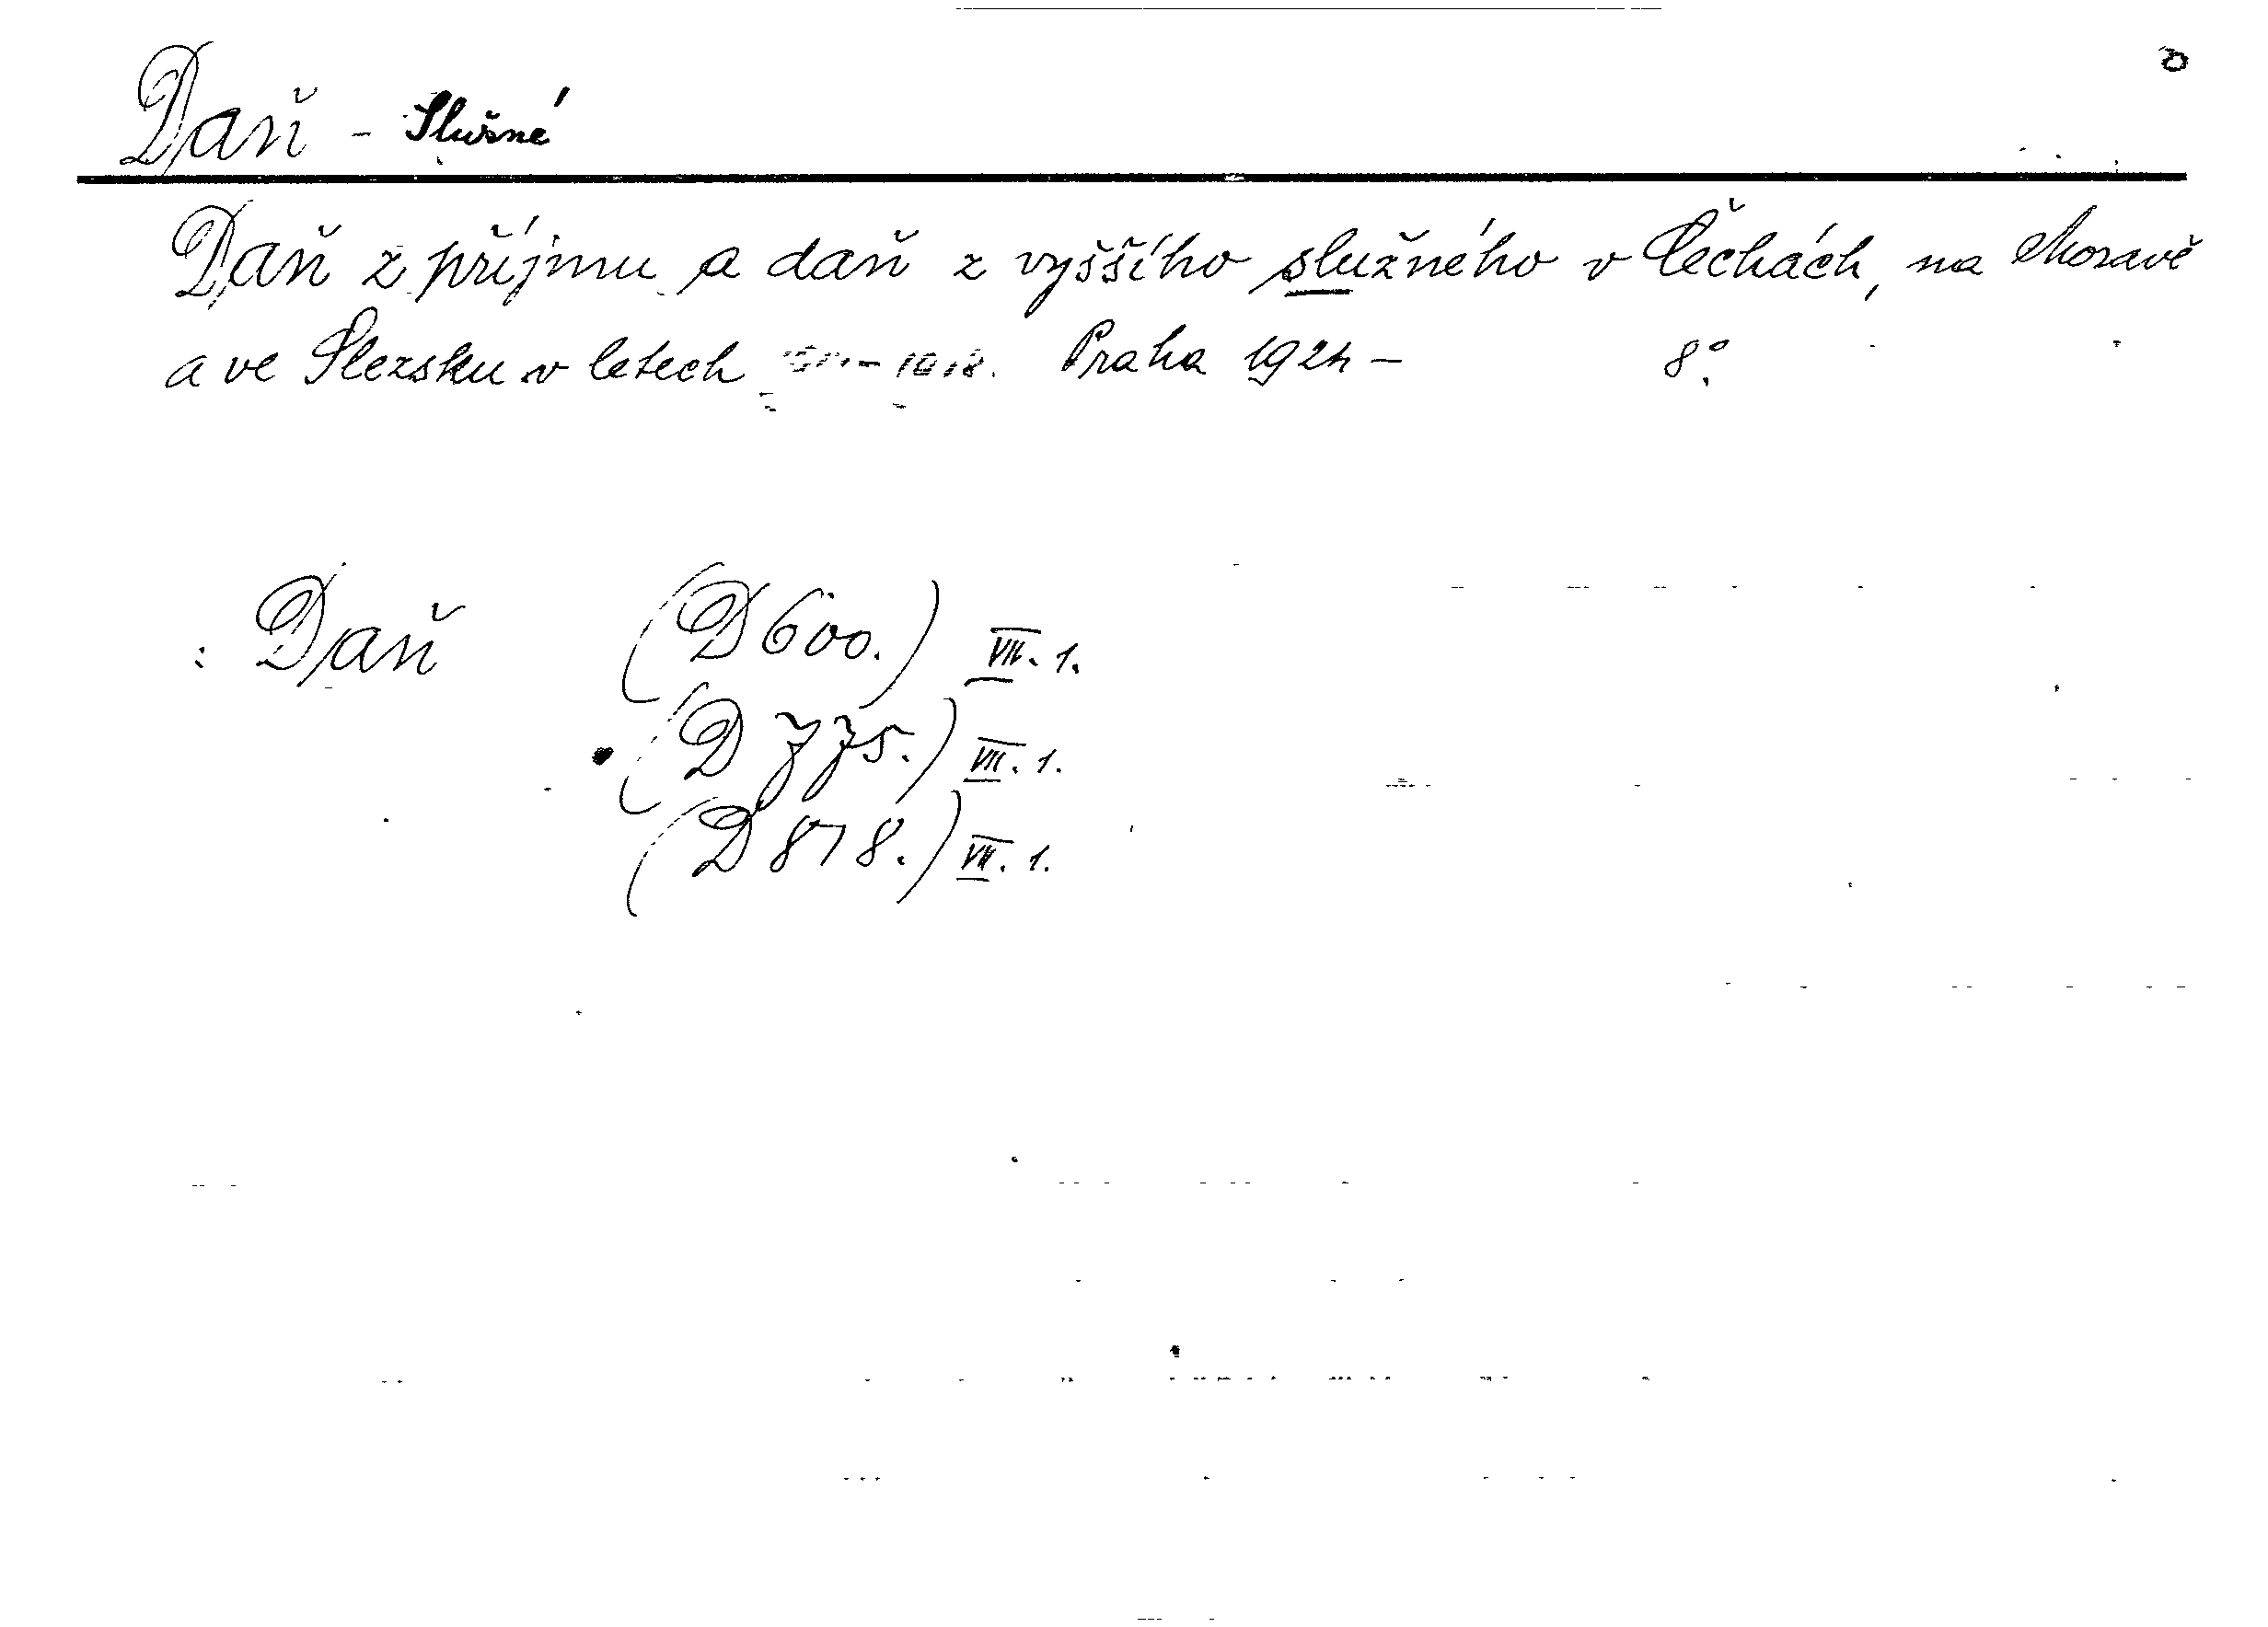 Daň - Služné
Daň z příjmu a daň z vyššího služného v Čechách, na Moravě
a ve Slezsku v letech -1918. Praha 1924 - 8°.
: Daň (D 600.) VII. 1.
(D 775.) VII. 1.
(D 878.) VII. 1.